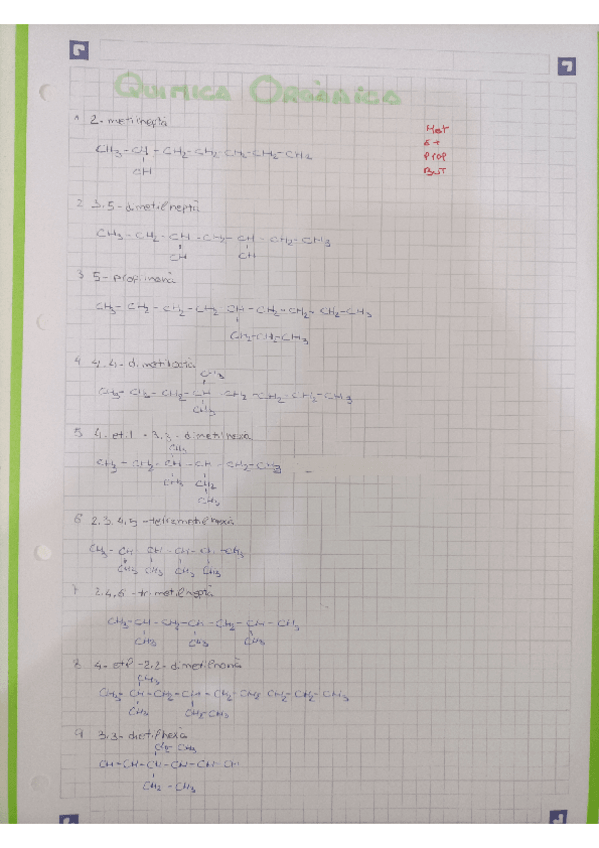 QUIMICA ORGÀNICA
1 2-metilheptà
Met
Et
Prop
But
CH3-CH-CH2-CH2-CH2-CH2-CH3
CH
2 3,5-dimetilheptà
CH3-CH2-CH-CH2-CH-CH2-CH3
CH CH
3 5-propilnonà
CH3-CH2-CH2-CH2 CH-CH2-CH2-CH2-CH3
CH2-CH2-CH3
4 4,4-dimetiloctà
CH3
CH3-CH2-CH2-CH-CH2-CH2-CH2-CH3
CH3
5 4-etil-3,3-dimetilhexà
CH3
CH3-CH2-CH-CH-CH2-CH3
CH3 CH2
CH3
6 2,3,4,5-tetrametilhexà
CH3-CH CH-CH-CH-CH3
CH3 CH3 CH3 CH3
7 2,4,6-trimetilheptà
CH3-CH-CH2-CH-CH2-CH-CH3
CH3 CH3 CH3
8 4-etil-2,2-dimetilnonà
CH3
CH3-CH-CH2-CH-CH2-CH2 CH2-CH2-CH3
CH3 CH2-CH3
9 3,3-dietilhexà
CH2-CH3
CH-CH-CH-CH-CH-CH
CH2-CH3